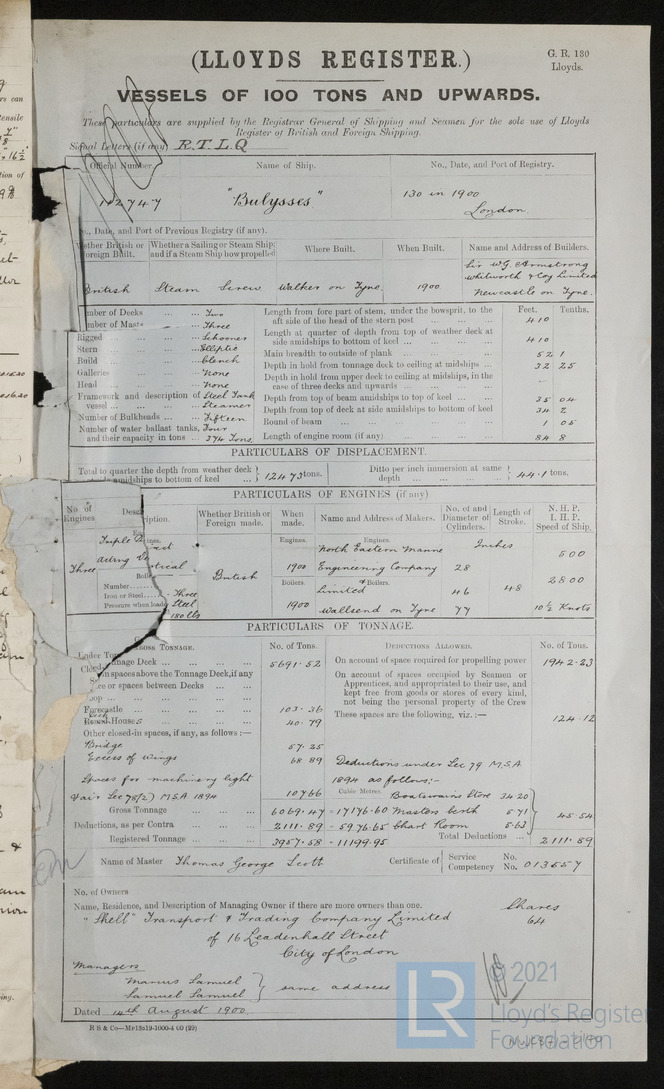 (LLOYDS REGISTER.)
G. R. 130
Lloyds.
VESSELS OF 100 TONS AND UPWARDS.
These particulars are supplied by the Registrar General of Shipping and Seamen for the sole use of Lloyds
Register of British and Foreign Shipping.
Signal Letters (if any) R.T.L.Q
Official Number. Name of Ship. No., Date, and Port of Registry.
"Bulysses" 130 in 1900
London
Date, and Port of Previous Registry (if any).
Whether British or Foreign Built. Whether a Sailing or Steam Ship; and if a Steam Ship how propelled Where Built. When Built. Name and Address of Builders.
British Steam Screw Walker on Tyne 1900 Sir W G Armstrong
Whitworth & Coy Limited
Newcastle on Tyne.
Number of Decks ... Two
Number of Masts ... Three
Rigged ... Schooner
Stern ... Elliptic
Build ... Clench
Galleries ... None
Head ... None
Framework and description of vessel ... Steel Tank Steamer
Number of Bulkheads ... Fifteen
Number of water ballast tanks, and their capacity in tons ... Four 374 Tons.
Feet. Tenths.
Length from fore part of stem, under the bowsprit, to the aft side of the head of the stern post ... 410
Length at quarter of depth from top of weather deck at side amidships to bottom of keel ... 410
Main breadth to outside of plank ... 52 1
Depth in hold from tonnage deck to ceiling at midships ... 32 25
Depth in hold from upper deck to ceiling at midships, in the case of three decks and upwards ... -
Depth from top of beam amidships to top of keel ... 35 04
Depth from top of deck at side amidships to bottom of keel 34 2
Round of beam ... 1 05
Length of engine room (if any) ... 84 8
PARTICULARS OF DISPLACEMENT.
Total to quarter the depth from weather deck at side amidships to bottom of keel } 12473 tons. Ditto per inch immersion at same depth } 44.1 tons.
PARTICULARS OF ENGINES (if any)
No. of Engines Description. Whether British or Foreign made. When made. Name and Address of Makers. No. of and Diameter of Cylinders. Length of Stroke. N. H. P. I. H. P. Speed of Ship.
Engines. Engines. Inches
Three British North Eastern Marine 500
1900 Engineering Company 28
Boilers. & Boilers. 2800
Limited 46 48
1900 Wallsend on Tyne 77 10½ Knots
Number ... Three
Iron or Steel ... Steel
Pressure when loaded 180 lbs
PARTICULARS OF TONNAGE.
GROSS TONNAGE. No. of Tons. DEDUCTIONS ALLOWED. No. of Tons.
Under Tonnage Deck ... 5691.52
On account of space required for propelling power 1942.23
On account of spaces occupied by Seamen or
Apprentices, and appropriated to their use, and
kept free from goods or stores of every kind,
not being the personal property of the Crew
These spaces are the following, viz.:— 124.12
Forecastle ... 103.36
Houses ... 40.79
Other closed-in spaces, if any, as follows:—
Bridge 57.25
Excess of wings 68.89
Deductions under Sec 79 M.S.A
1894 as follows:-
Spaces for machinery light
& air Sec 78(2) M.S.A 1894 107.66
Cubic Metres. Boatswains Store 34.20
Gross Tonnage 6069.47 = 17176.60 Masters berth 5.71
45.54
Deductions, as per Contra ... 2111.89 = 5976.65 Chart Room 5.63
Registered Tonnage ... 3957.58 = 11199.95 Total Deductions ... 2111.89
Name of Master Thomas George Scott Certificate of { Service No. Competency No. 013557
No. of Owners
Name, Residence, and Description of Managing Owner if there are more owners than one. Shares
"Shell" Transport & Trading Company Limited 64
of 16 Leadenhall Street
City of London
Managers
Marcus Samuel
Samuel Samuel } same address
Dated 14th August 1900
© 2021
Lloyd's Register
Foundation
LR